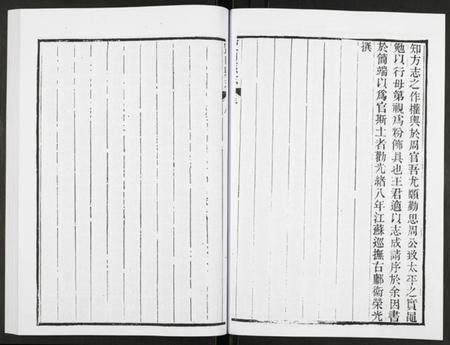 知方志之作權輿於周官吾尤願勤思周公致太平之實黽
勉以行毋第視爲粉飾具也王君適以志成請序於余因書
於簡端以爲官斯土者勸光緒八年江蘇巡撫右鄺衞榮光
撰